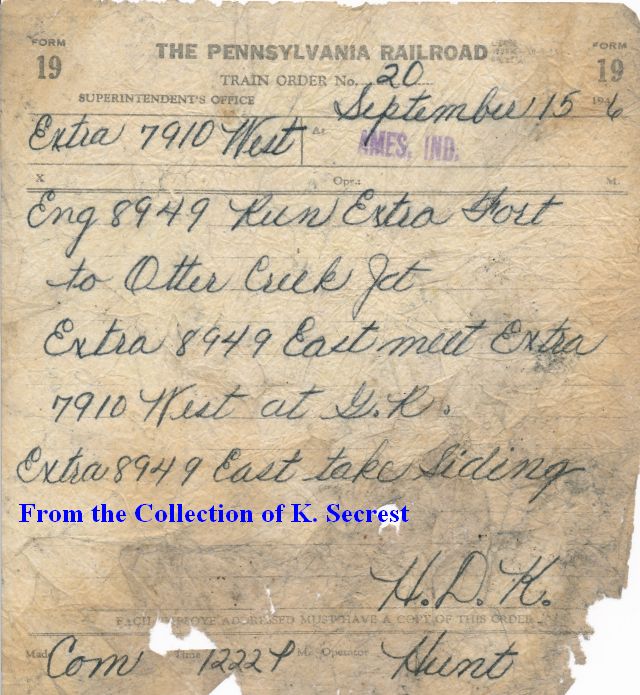 FORM 19 THE PENNSYLVANIA RAILROAD FORM 19
TRAIN ORDER No. 20
SUPERINTENDENT'S OFFICE September 15 19 6
Extra 7910 West At AMES, IND.
X Opr.: M.
Eng 8949 Run Extra Fort
to Otter Creek Jct
Extra 8949 East meet Extra
7910 West at G.R.
Extra 8949 East take Siding
From the Collection of K. Secrest
H. D. K.
EACH EMPLOYE ADDRESSED MUST HAVE A COPY OF THIS ORDER
Made Com Time 1222 P M. Operator Hunt